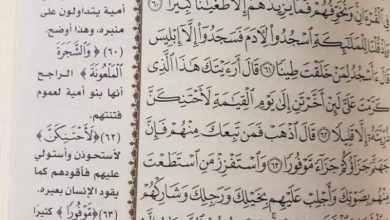 وَنُخَوِّفُهُمْ فَمَا يَزِيدُهُمْ إِلَّا طُغْيَٰنًا كَبِيرًا ٦٠
قُلْنَا لِلْمَلَٰٓئِكَةِ ٱسْجُدُوا۟ لِءَادَمَ فَسَجَدُوٓا۟ إِلَّآ إِبْلِيسَ
ءَأَسْجُدُ لِمَنْ خَلَقْتَ طِينًا ٦١ قَالَ أَرَءَيْتَكَ هَٰذَا ٱلَّذِى
كَرَّمْتَ عَلَىَّ لَئِنْ أَخَّرْتَنِ إِلَىٰ يَوْمِ ٱلْقِيَٰمَةِ لَأَحْتَنِكَنَّ
إِلَّا قَلِيلًا ٦٢ قَالَ ٱذْهَبْ فَمَن تَبِعَكَ مِنْهُمْ فَإِنَّ
جَهَنَّمَ جَزَآؤُكُمْ جَزَآءً مَّوْفُورًا ٦٣ وَٱسْتَفْزِزْ مَنِ ٱسْتَطَعْتَ
مِنْهُم بِصَوْتِكَ وَأَجْلِبْ عَلَيْهِم بِخَيْلِكَ وَرَجِلِكَ وَشَارِكْهُمْ
أمية يتداولون على
منبره، وهذا أوضح.
(٦٠) ﴿وَٱلشَّجَرَةَ
ٱلْمَلْعُونَةَ﴾ الراجح
أنها بنو أمية لعموم
فتنتهم.
(٦٢) ﴿لَأَحْتَنِكَنَّ﴾
لأستحوذن وأستولي
عليهم فأقودهم كما
يقود الإنسان بعيره.
(٦٣) ﴿مَّوْفُورًا﴾ كثيرًا